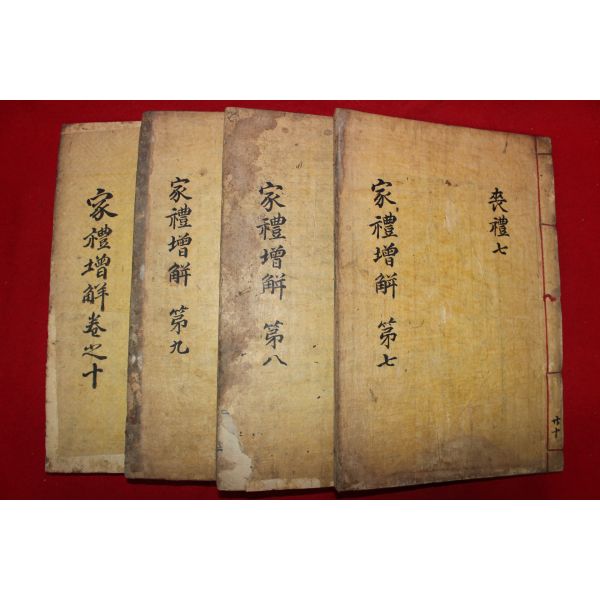 喪禮七
家禮增解 第七
共十
家禮增解 第八
家禮增解 第九
家禮增解卷之十